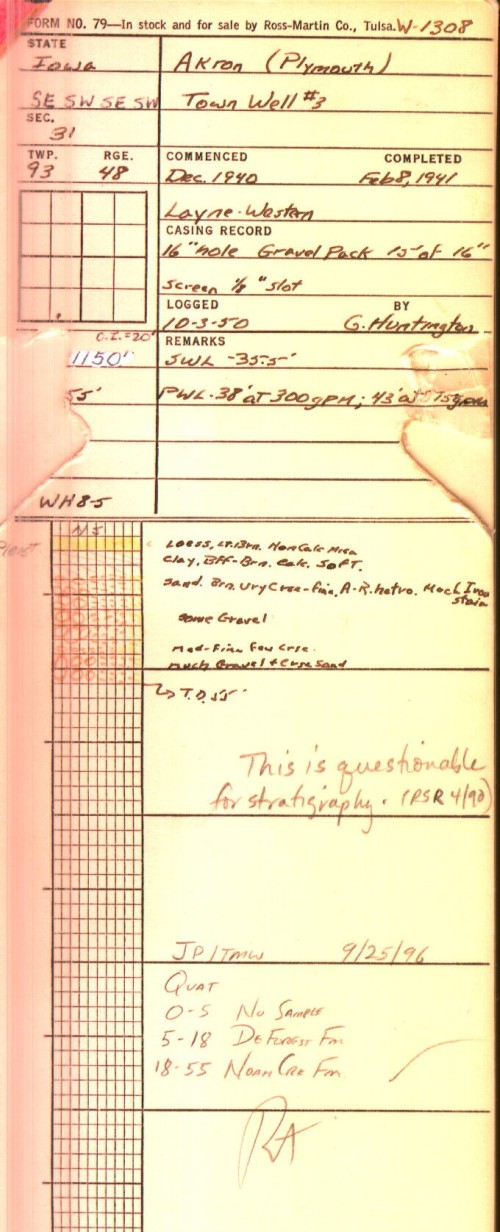 FORM NO. 79—In stock and for sale by Ross-Martin Co., Tulsa. W-1308
STATE
Iowa
Akron (Plymouth)
SE SW SE SW
Town Well #3
SEC.
31
TWP. RGE.
93 48
COMMENCED COMPLETED
Dec. 1940 Feb 8, 1941
Layne-Western
CASING RECORD
16" hole Gravel Pack 15' of 16"
Screen 1/8" slot
LOGGED BY
10-3-50 G. Huntington
C.I.=20'
REMARKS
1150'
SWL -35.5'
55'
PWL-38' at 300gPM; 43' at
WH85
NS
Loess, Lt. Brn. Non Calc Mica
Clay, Bff-Brn. Calc. Soft.
Sand. Brn. Vry Crse-fine, A-R. hetro. Much Iron
stain
some Gravel
Med-Fine Few Crse.
much Gravel + Crse Sand
T.D. 55'
This is questionable
for stratigraphy. (RSR 4/90)
JP/TMW 9/25/96
QUAT
0-5 No Sample
5-18 DeForest Fm
18-55 Noah Crk Fm